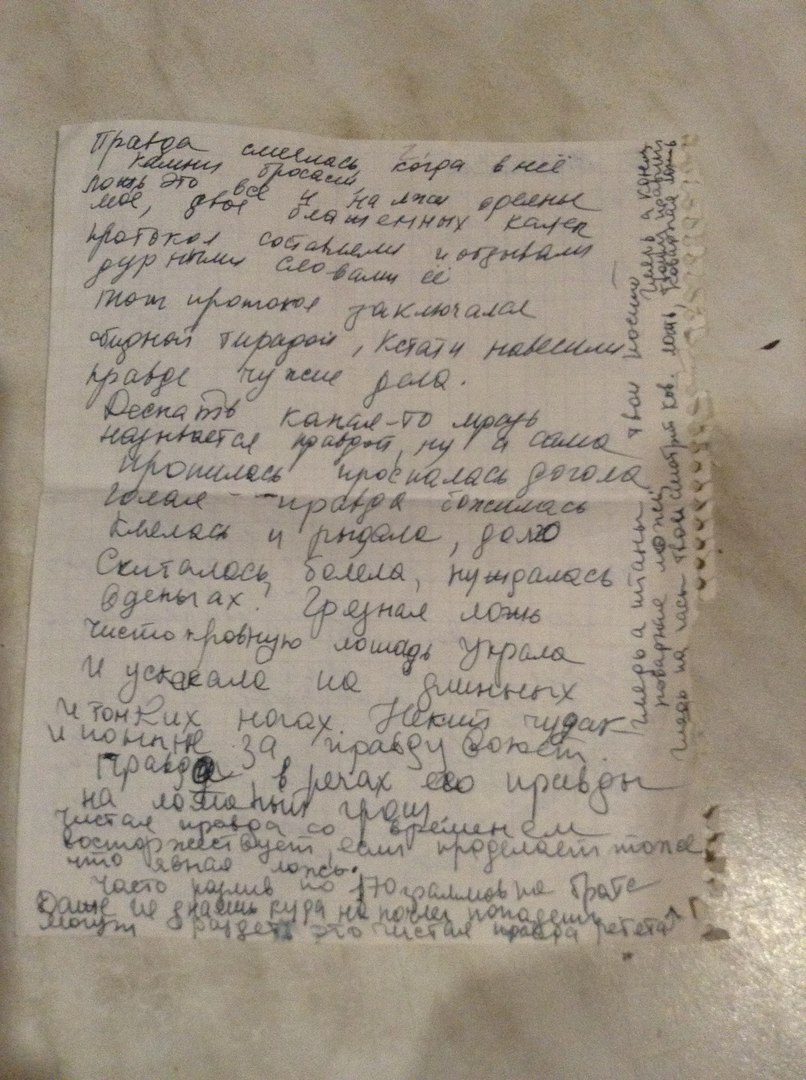 Правда смеялась когда в неё
камни бросали
ложь это все и на лжи одеяне
мое, двое блаженных калек
протокол составляли и обзывали
дурными словами её
тот протокол заключался
обидной тирадой, кстати навесили
правде чужие дела.
Дескать какая-то мразь
называется правдой, ну а сама
пропилась проспалась догола
голая правда божилась
клялась и рыдала, долго
Скиталась, болела, нуждалась
в деньгах. Грязная ложь
чистокровную лошадь украла
И ускакала на длинных
И тонких ногах Некий чудак
и поныне за правду воюет.
Правда в речах его правды
на ломаный грош
чистая правда со временем
восторжествует, если проделает тоже
что явная ложь.
Часто разлив по 170 граммов на брата
Даже не знаешь куда на ночлег попадешь
могут раздеть это чистая правда ребята
глядь а штаны твои носит
коварная ложь
глядь на часы твои смотрит ков. ложь,
коварная ложь